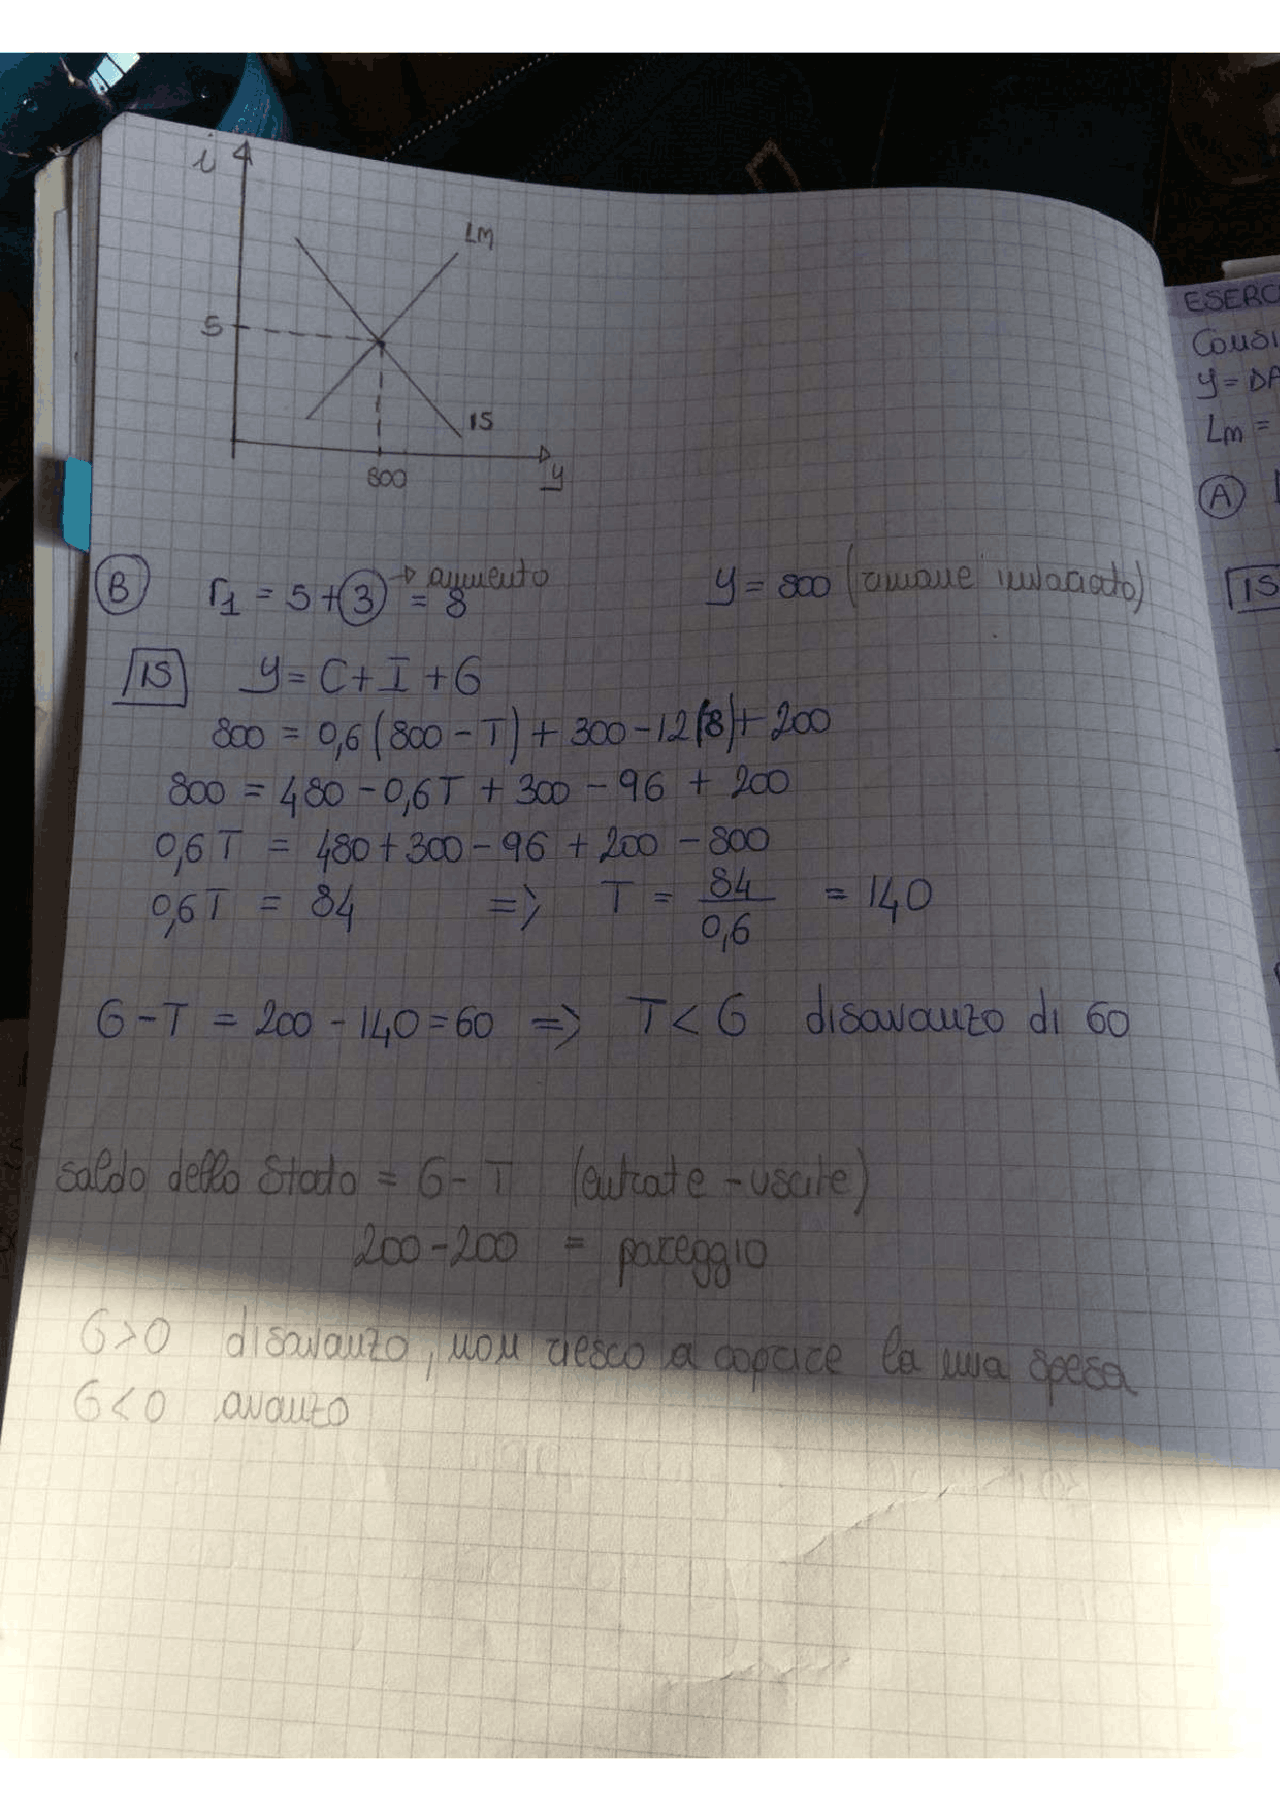 i
LM
5
IS
800
y
B r1 = 5+3 = 8 → aumento y = 800 (rimane invariato)
IS y = C + I + G
800 = 0,6(800 - T) + 300 - 12(8) + 200
800 = 480 - 0,6T + 300 - 96 + 200
0,6T = 480 + 300 - 96 + 200 - 800
0,6T = 84 => T = 84/0,6 = 140
G - T = 200 - 140 = 60 => T < G disavanzo di 60
saldo dello Stato = G - T (entrate - uscite)
200 - 200 = pareggio
G > 0 disavanzo, non riesco a coprire la mia spesa
G < 0 avanzo
ESERC
Consi
y = DA
LM =
A
IS